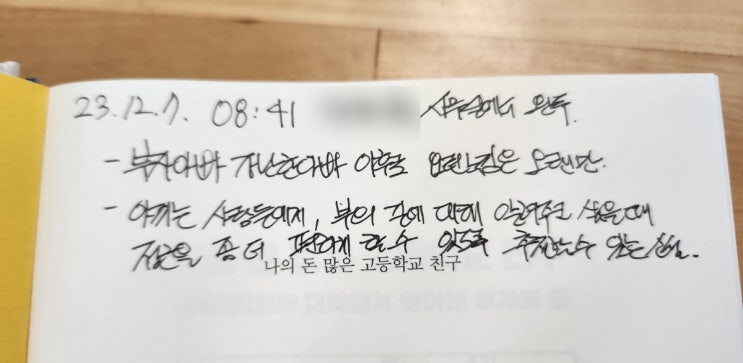 23.12.7. 08:41 사무실에서 완독.
- 부자아빠 가난한아빠 이후로 이런느낌은 오랜만.
- 아끼는 사람들에게, 부의 길에 대해 알려주고 싶을때
저글을 좀 더 편하게 할 수 있도록 추천할 수 있는 책.
나의 돈 많은 고등학교 친구